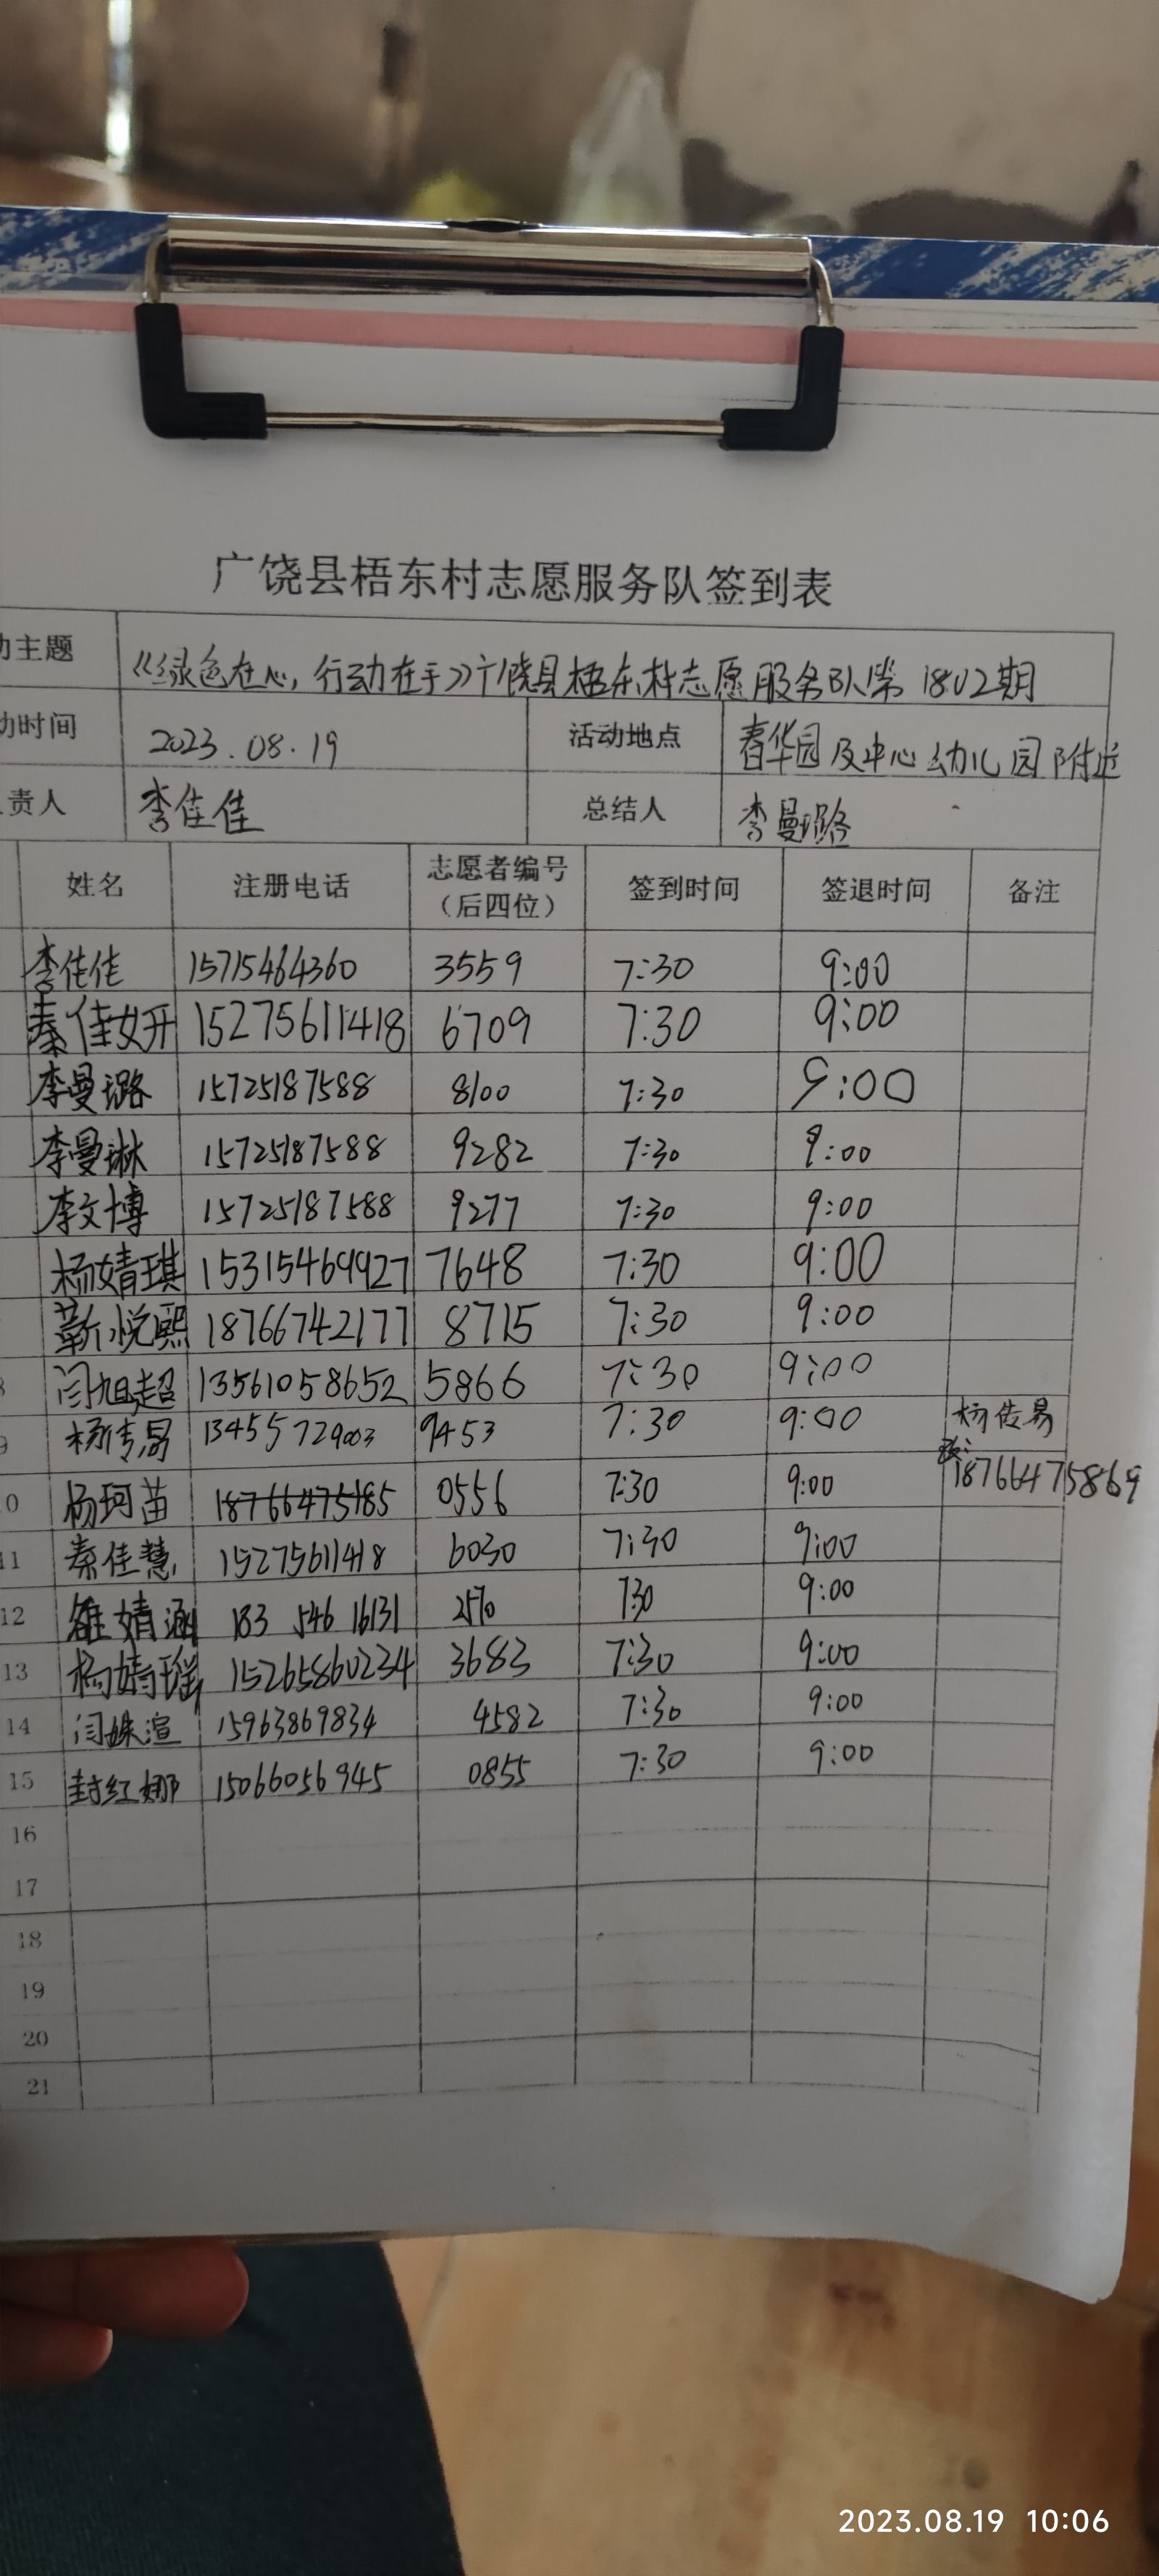 广饶县梧东村志愿服务队签到表
动主题 《绿色在心，行动在手》广饶县梧东村志愿服务队第1802期
动时间 2023.08.19 活动地点 春华园及中心幼儿园附近
负责人 李佳佳 总结人 李曼璐
姓名 注册电话 志愿者编号（后四位） 签到时间 签退时间 备注
李佳佳 15715464360 3559 7:30 9:00
秦佳妍 15275611418 6709 7:30 9:00
李曼璐 15725187588 8100 7:30 9:00
李曼琳 15725187588 9282 7:30 9:00
李文博 15725187588 9277 7:30 9:00
杨婧琪 15315469927 7648 7:30 9:00
靳悦熙 18766742177 8715 7:30 9:00
8 闫旭超 13561058652 5866 7:30 9:00
9 杨传易 13455729003 9453 7:30 9:00 杨传易
10 杨珂苗 18766475185 0556 7:30 9:00 18766475869
11 秦佳慧 15275611418 6030 7:30 9:00
12 雒婧涵 183 546 16131 2570 730 9:00
13 杨婧瑶 15265860234 3683 7:30 9:00
14 闫姝渲 15963869834 4582 7:30 9:00
15 封红娜 15066056945 0855 7:30 9:00
16
17
18
19
20
21
2023.08.19 10:06